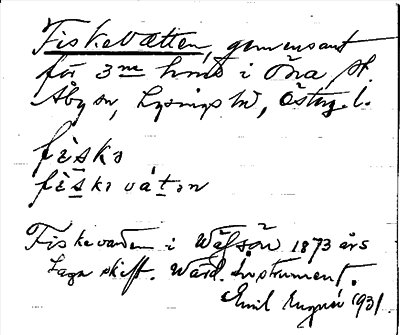 Fiskevatten, gemensamt
för 3ne hmd i Öna,
Åby sn, Lysings hd, Österg. l.
fiskə
fiskəvátən
Fiskevatten i 1873 års
Laga skift. Värd. Instrument.
Emil 1931